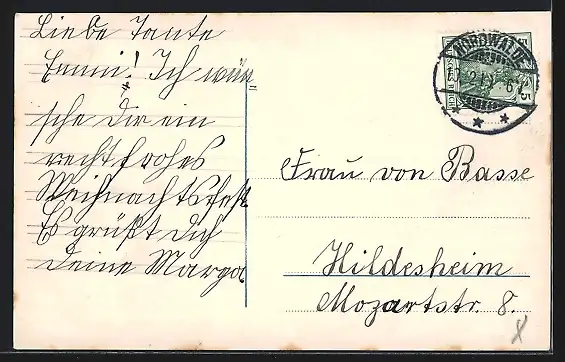 Liebe Tante
Emmi! Ich wün=
sche Dir ein
recht frohes
Weihnachtsfest
Es grüßt Dich
Deine Marga
NORDWALDE
Frau von Basse
Hildesheim
Mozartstr. 8.